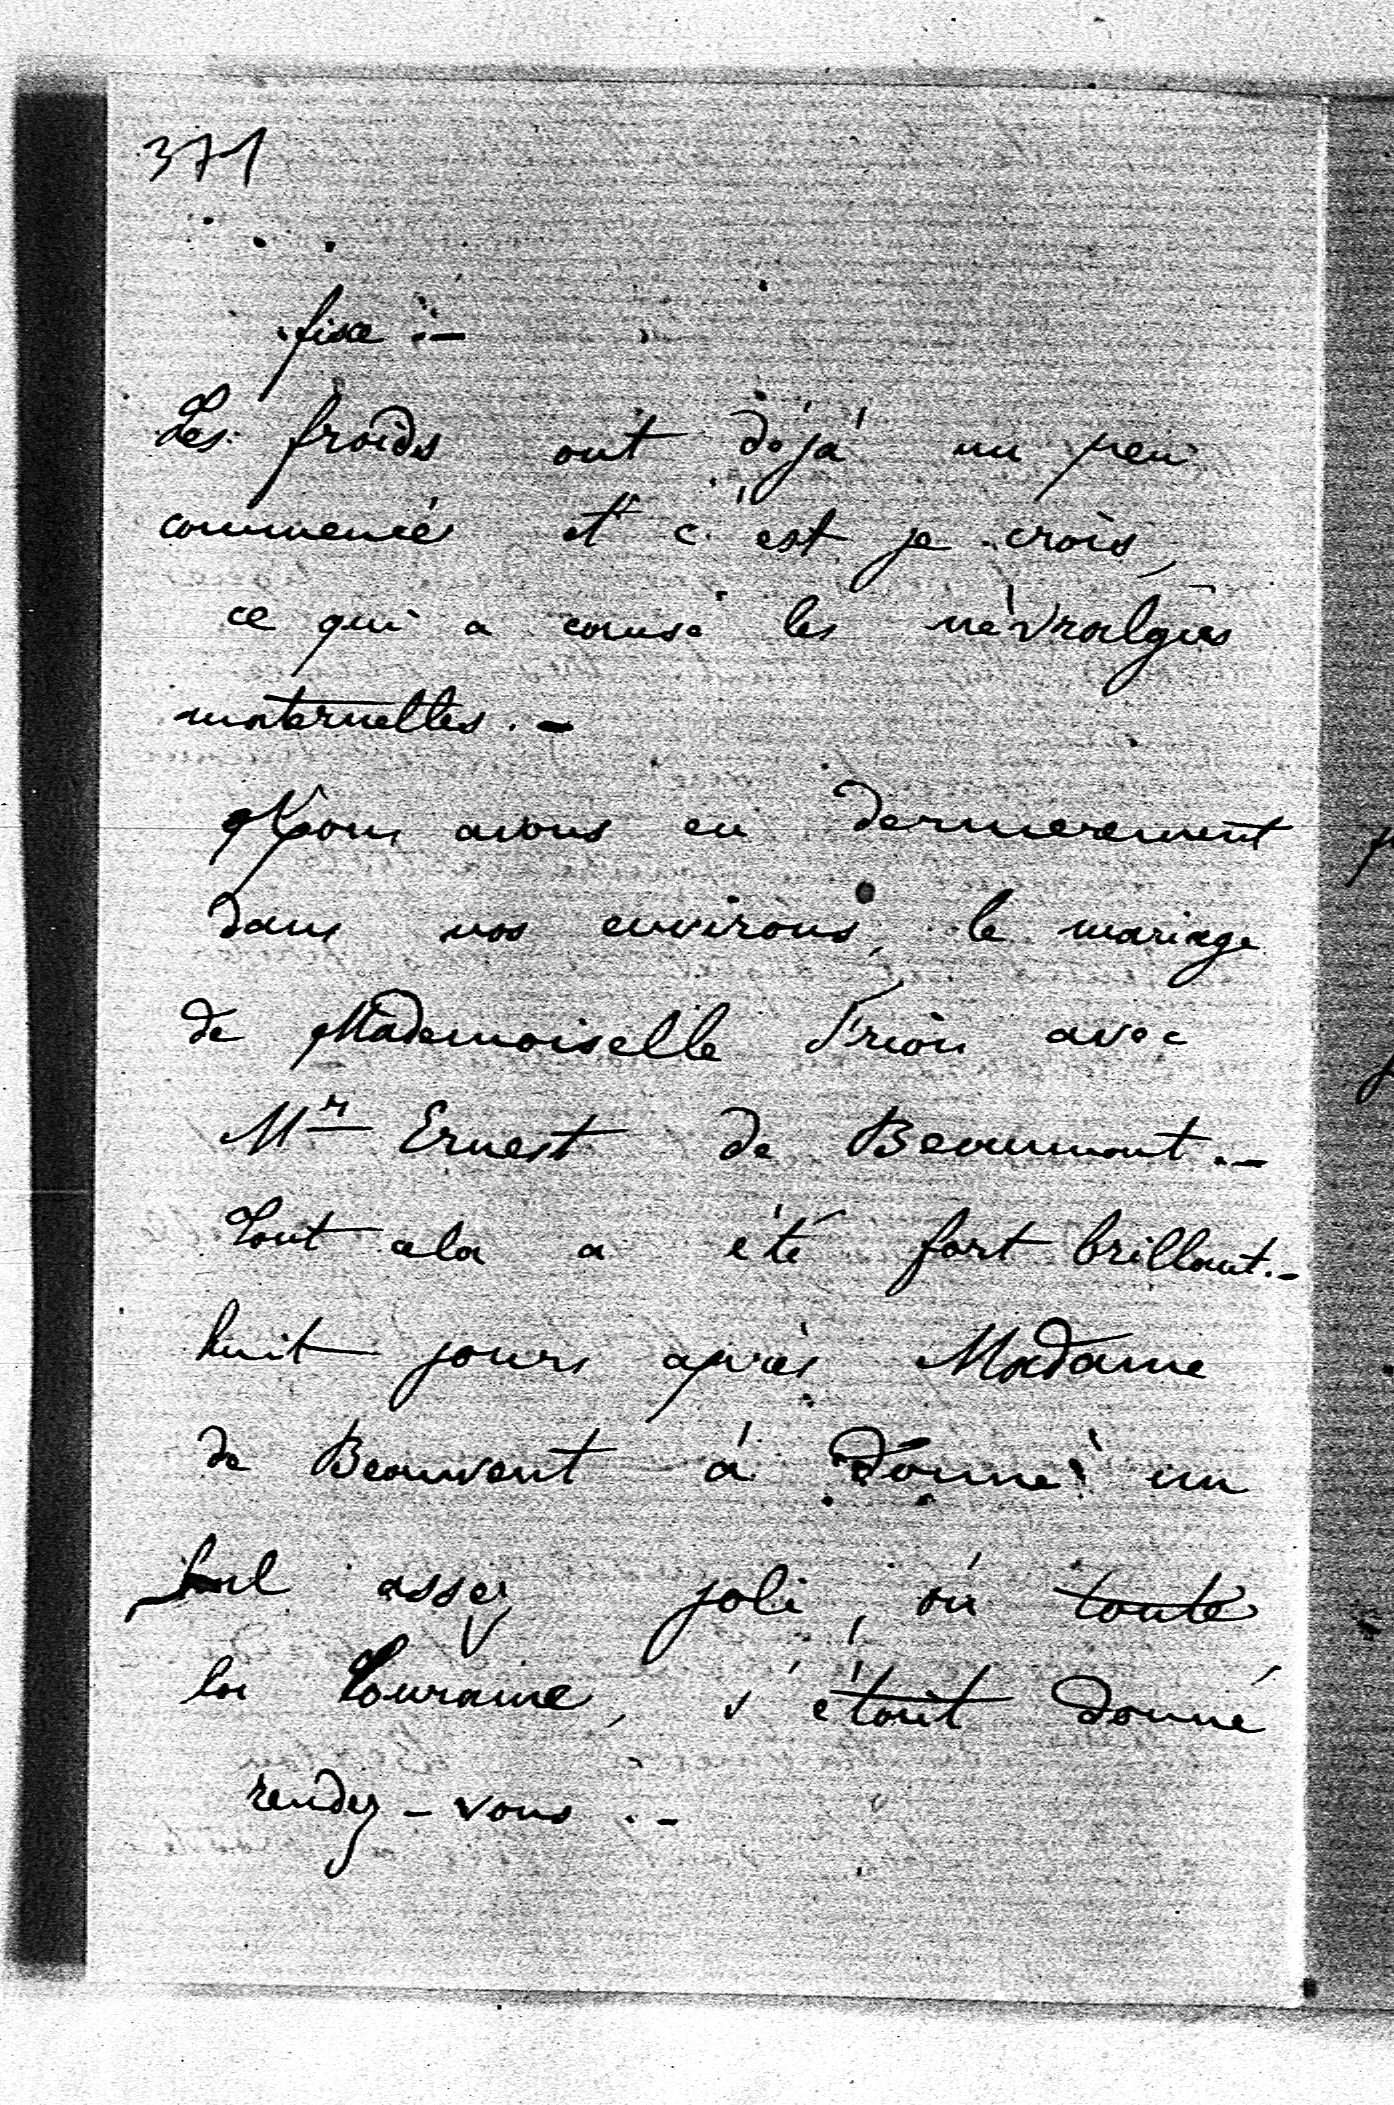 371
fixe. —
Les froids ont déjà un peu
commencé et c'est je crois,
ce qui a causé les névralgies
maternelles. —
Nous avons eu dernierement
dans nos environs, le mariage
de Mademoiselle Frion avec
Mr Ernest de Beaumont. —
Tout cela a été fort brillant. —
huit jours après Madame
de Beauvent à donné un
bal assez joli, où toute
la Touraine, s'était donné
rendez-vous. —